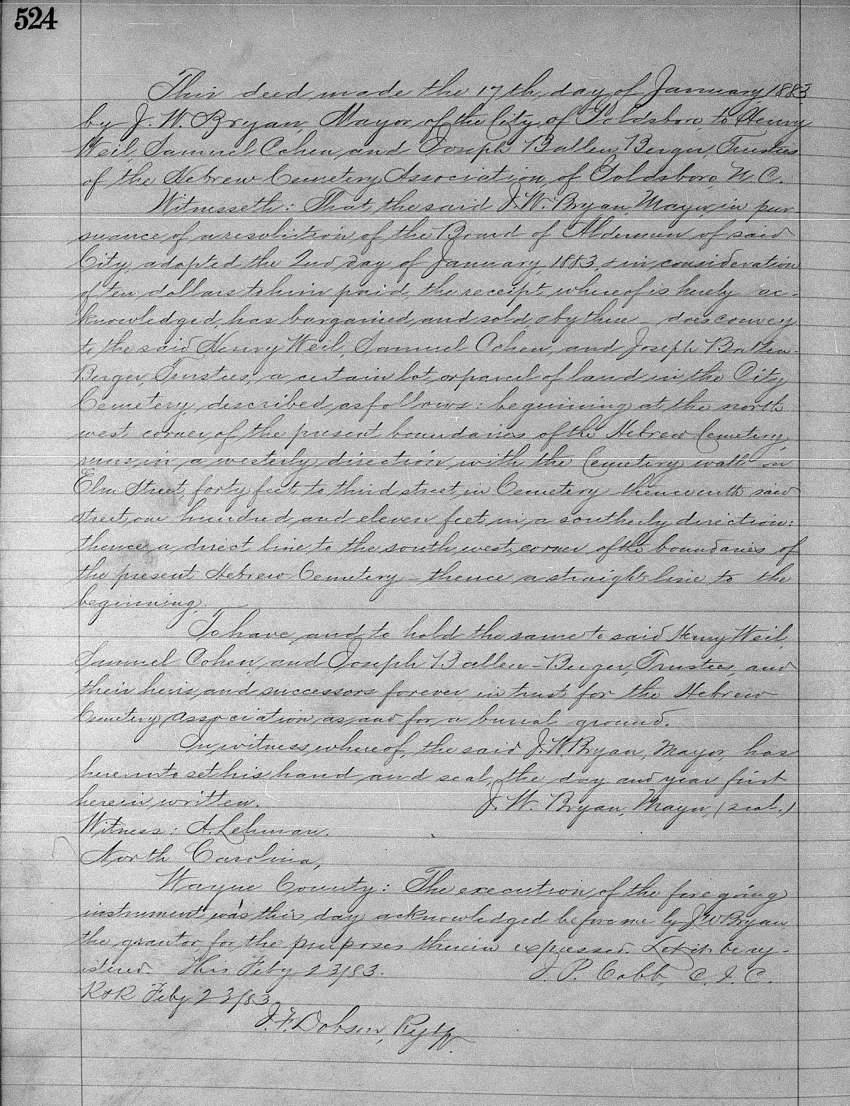 524
This deed made the 17th day of January 1883
by J. W. Bryan, Mayor of the City of Goldsboro, to Henry
Weil, Samuel Cohen, and Joseph Ballen Berger, Trustees
of the Hebrew Cemetery Association, of Goldsboro, N. C.
Witnesseth: That the said J. W. Bryan, Mayor, in pur-
suance of a resolution of the Board of Aldermen of said
City, adopted the 2nd day of January, 1883, & in consideration
of ten dollars to him paid, the receipt whereof is hereby ac-
knowledged, has bargained, and sold, & by these does convey
to, the said Henry Weil, Samuel Cohen, and Joseph Ballen-
Berger, Trustees, a certain lot, or parcel of land in the City
Cemetery, described as follows: beginning at the north
west corner, of the present boundaries of the Hebrew Cemetery,
runs in a westerly direction with the Cemetery wall on
Elm Street forty feet to third street, in Cemetery thence with said
street, one hundred and eleven feet, in a southerly direction:
thence a direct line to the south west corner of the boundaries of
the present Hebrew Cemetery - thence a straight line to the
beginning.
To have and to hold the same to said Henry Weil,
Samuel Cohen, and Joseph Ballen-Berger, Trustees, and
their heirs, and successors forever in trust for the Hebrew
Cemetery Association as and for a burial ground.
In witness whereof, the said J. W. Bryan, Mayor, has
hereunto set his hand and seal, the day and year first
herein written. J. W. Bryan, Mayor, (seal.)
Witness: A. Lehman.
North Carolina,
Wayne County: The execution of the foregoing
instrument was this day acknowledged before me by J W Bryan
the grantor for the purposes therein expressed. Let it be reg-
istered. This Feby 23/83. J. P. Cobb, C. S. C.
R & R Feby 23/83
J. F. Dobson, Regtr.